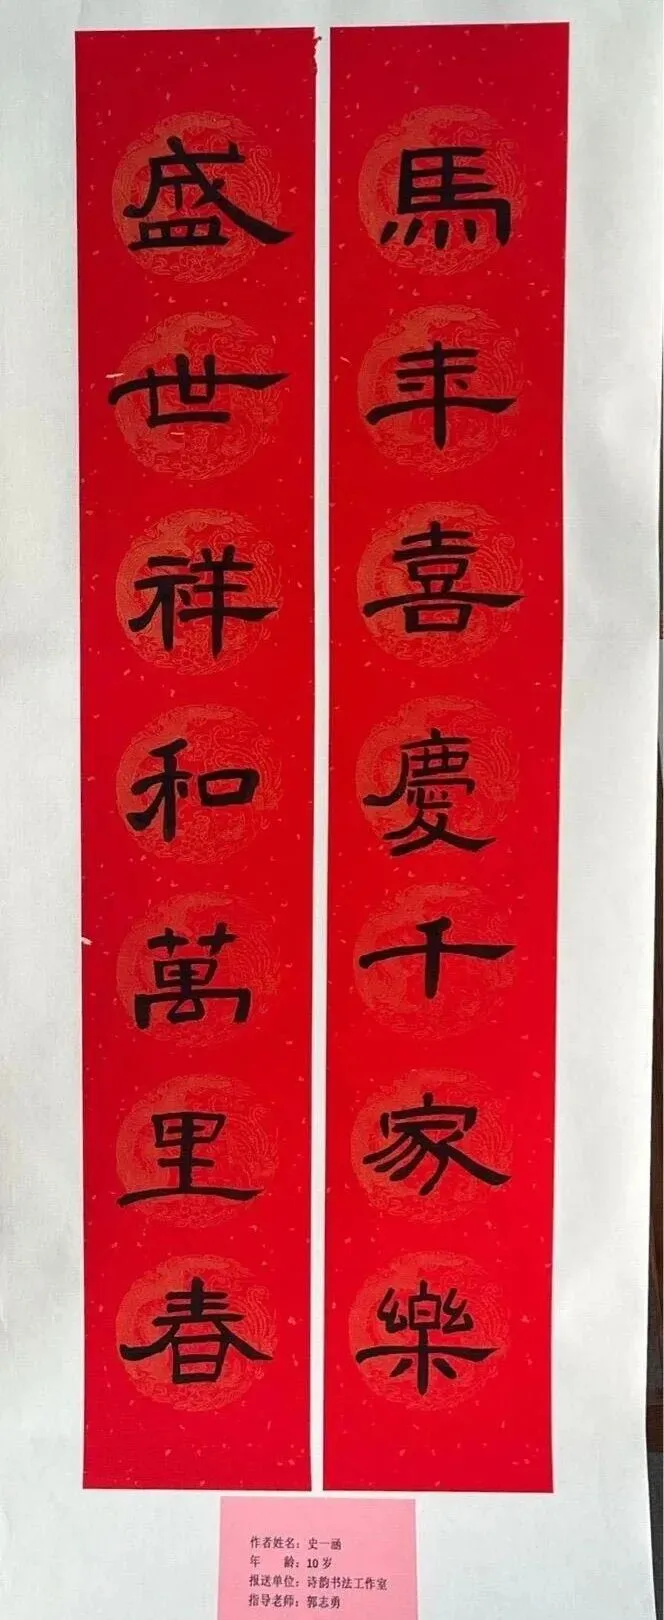 馬年喜慶千家樂
盛世祥和萬里春
作者姓名：史一涵
年　　龄：10 岁
报送单位：诗韵书法工作室
指导老师：郭志勇